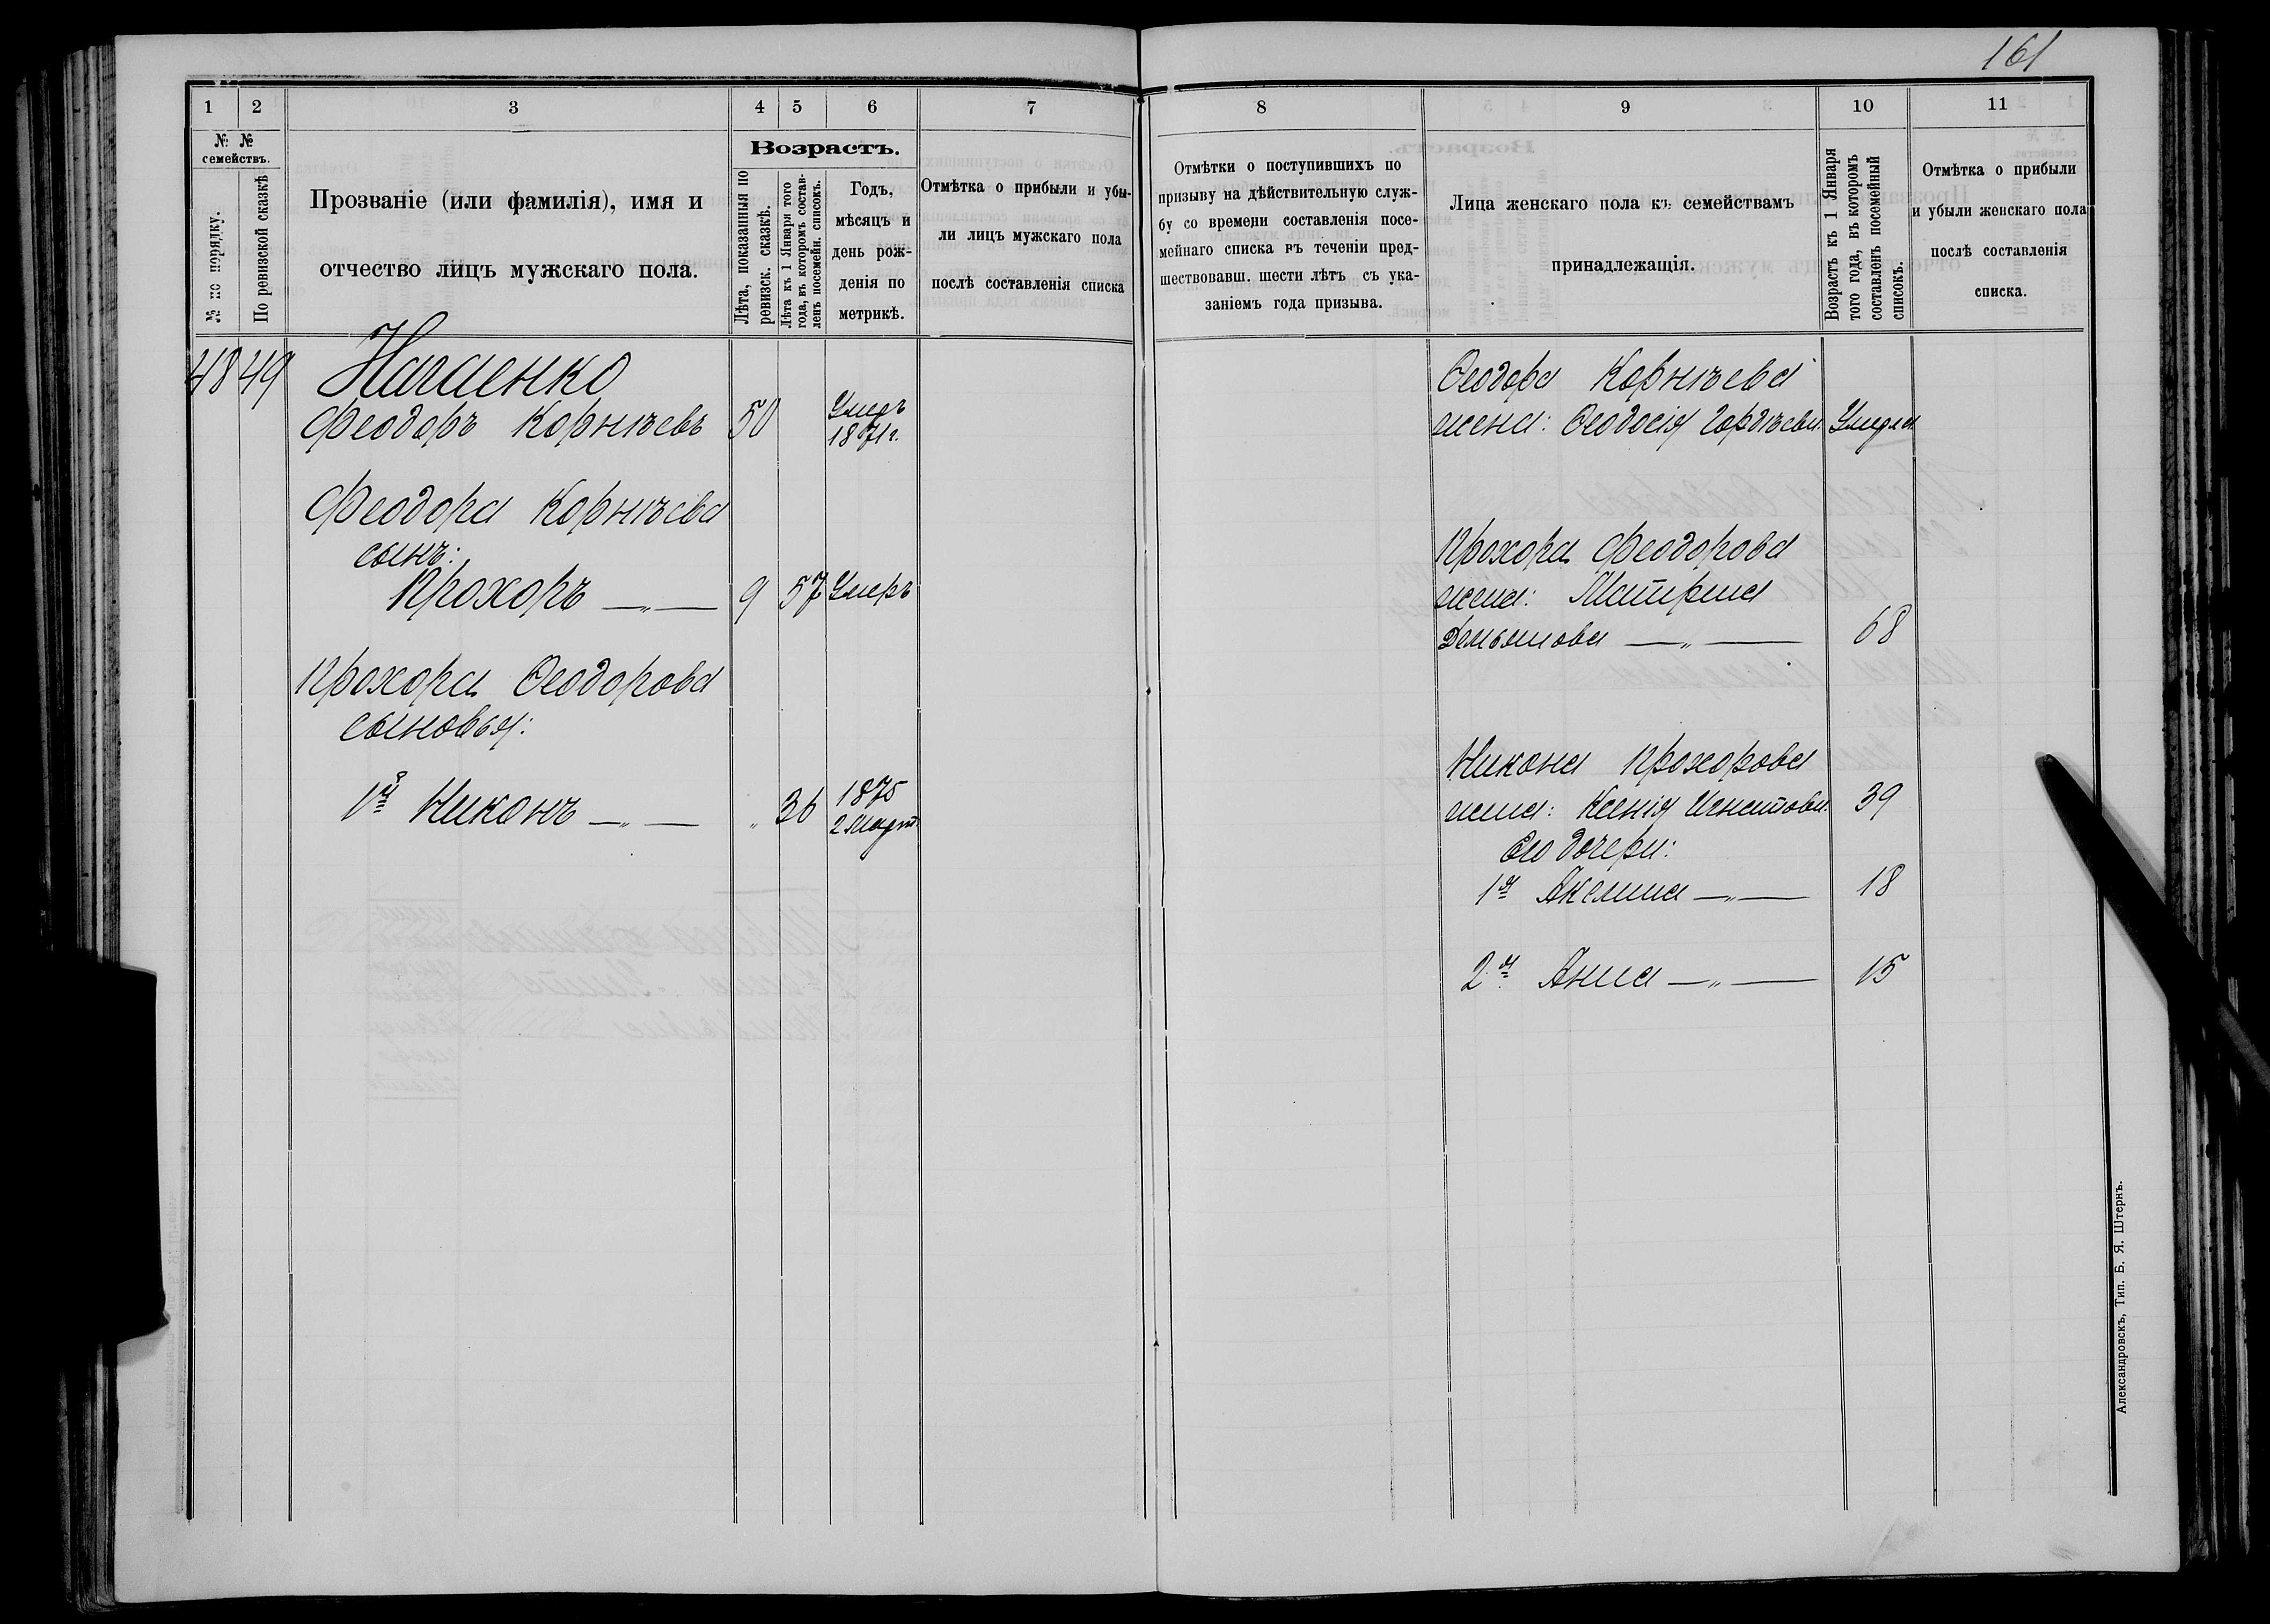 161
1 2 3 4 5 6 7
№ № семействъ.
№ по порядку.
По ревизской сказкѣ
Прозваніе (или фамилія), имя и
отчество лицъ мужскаго пола.
Возрастъ.
Лѣта, показанныя по
ревизск. сказкѣ.
Лѣта къ 1 Января того
года, въ которомъ состав-
ленъ посемейн. списокъ.
Годъ,
мѣсяцъ и
день рож-
денія по
метрикѣ.
Отмѣтка о прибыли и убы-
ли лицъ мужскаго пола
послѣ составленія списка
48 49 Нагаенко
Феодоръ Корнѣевъ 50 Умеръ
1871 г.
Феодора Корнѣева
сынъ:
Прохоръ —„— 9 57 Умеръ
Прохора Ѳеодорова
сыновья:
1й Никонъ —„— „ 36 1875
2 Март.
8 9 10 11
Отмѣтки о поступившихъ по
призыву на дѣйствительную служ-
бу со времени составленія посе-
мейнаго списка въ теченіи пред-
шествовавш. шести лѣтъ съ ука-
заніемъ года призыва.
Лица женскаго пола къ семействамъ
принадлежащія.
Возрастъ къ 1 Января
того года, въ которомъ
составленъ посемейный
списокъ.
Отмѣтка о прибыли
и убыли женскаго пола
послѣ составленія
списка.
Ѳеодора Корнѣева
жена: Ѳеодосія Гордѣева Умерла
Прохора Феодорова
жена: Матрена
Демьянова —„— 68
Никона Прохорова
жена: Ксенія Игнатова 39
Его дочери:
1я Акелина —„— 18
2я Анна —„— 15
Александровскъ, Тип. Б. Я. Штернъ.